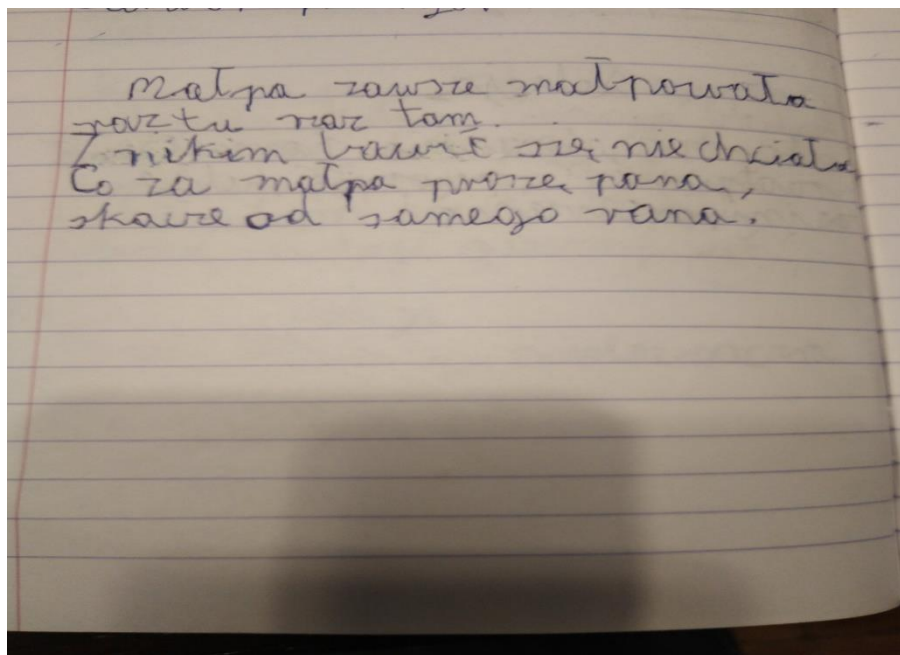 Małpa zawsze małpowała
raz tu raz tam.
Z nikim bawić się nie chciała
Co za małpa proszę pana,
skacze od samego rana.